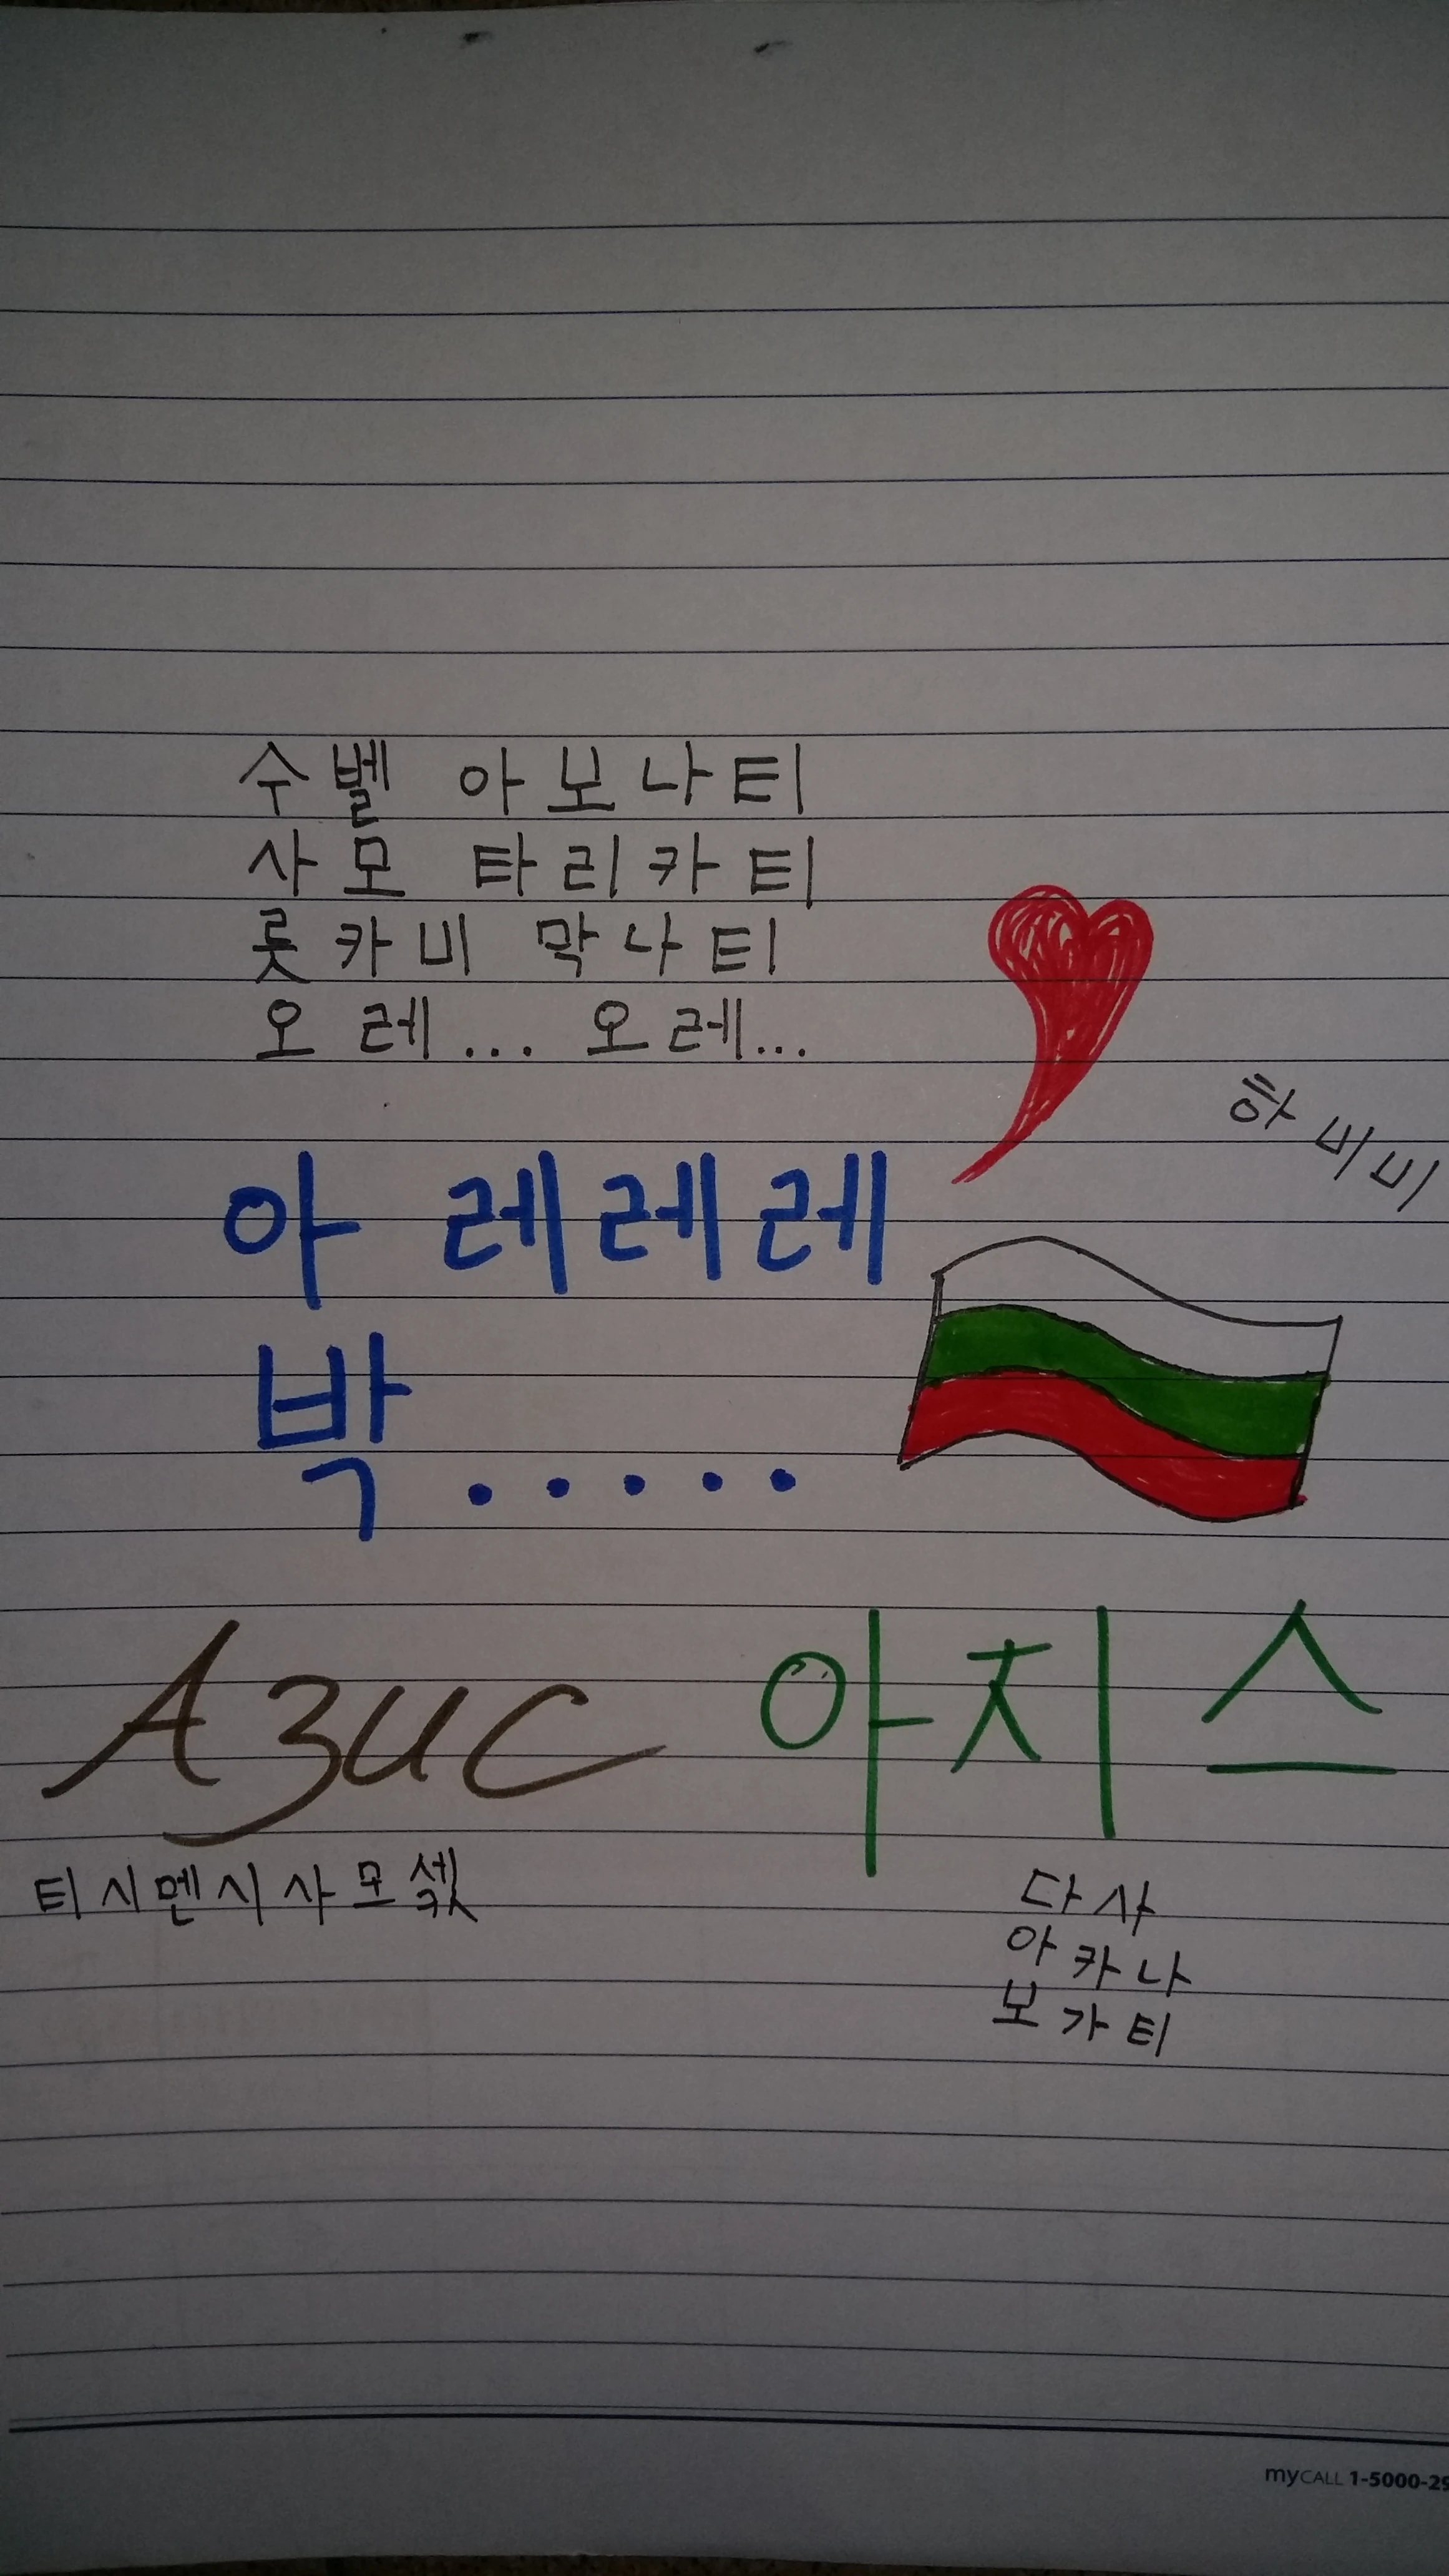 수벨 아보나티
사모 타리카티
롯카비 막나티
오레... 오레...
하비비
아 레레레
박.....
Azuc 아지스
티시멘시사모섻
다사
아카나
보가티
myCALL 1-5000-25